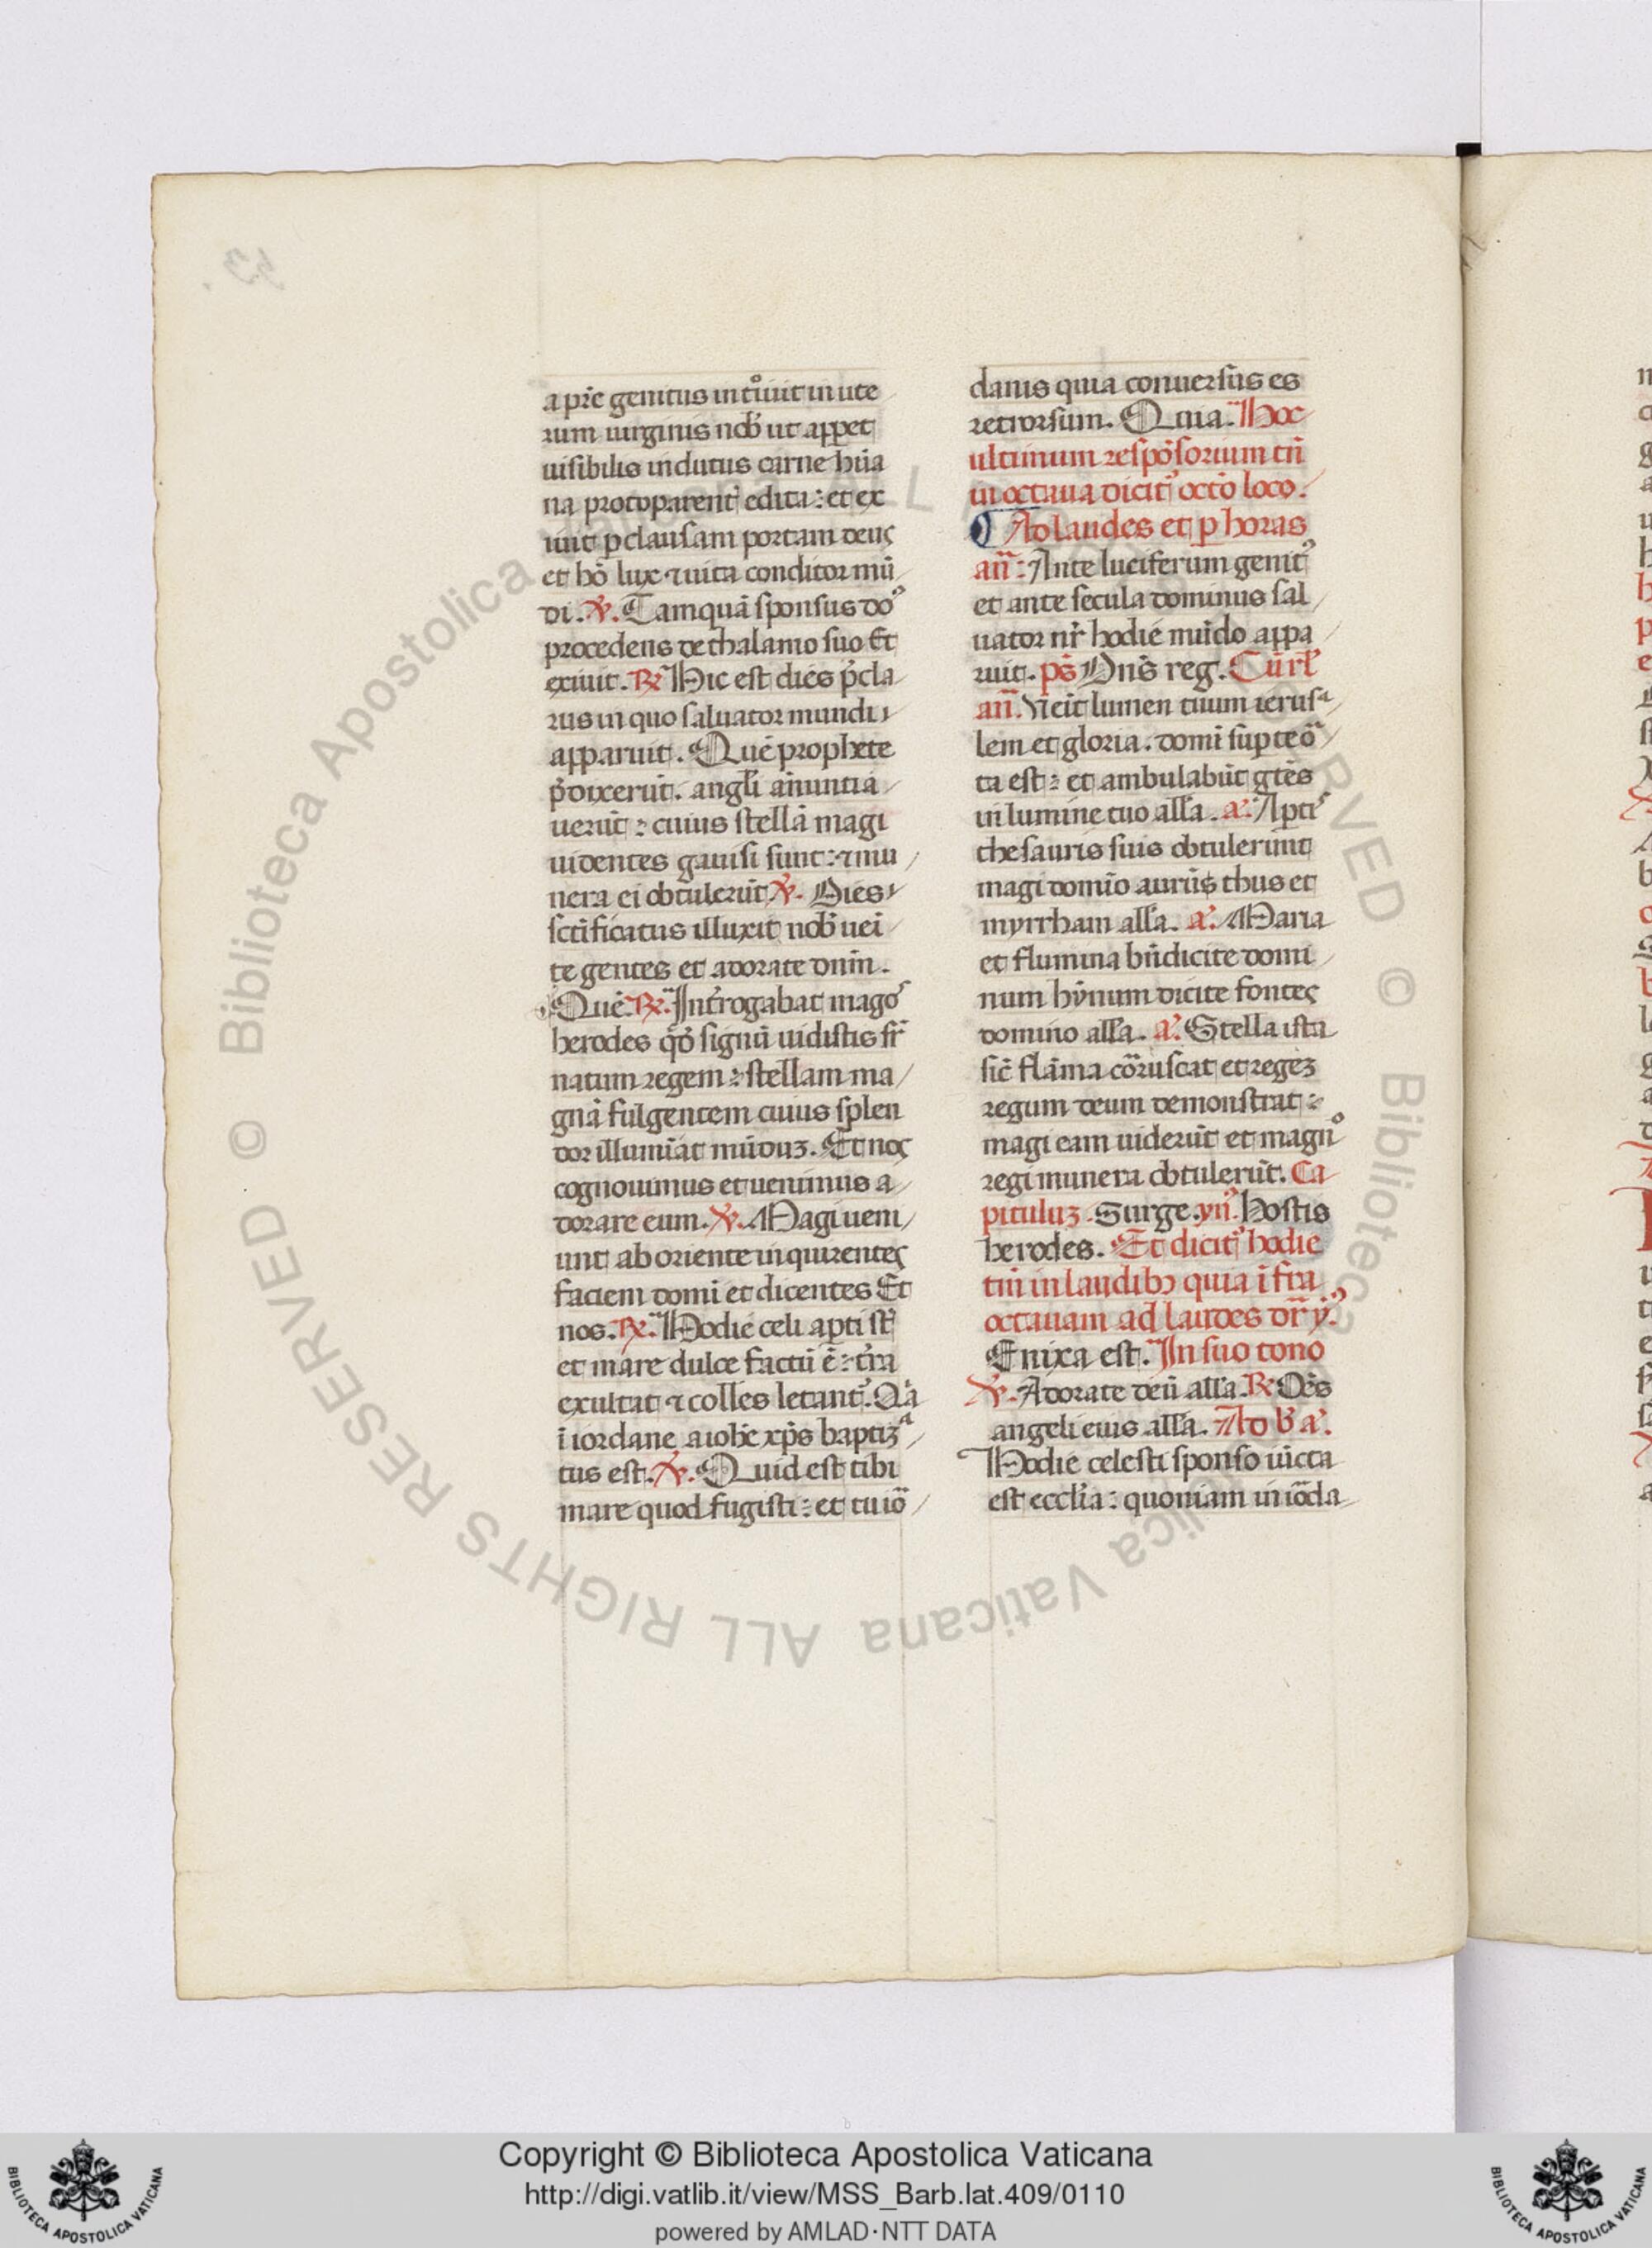 a pr̄e genitus intͦiuit in ute
rum uirginis nob̄ ut apꝑet
uisibilis indutus carne hūa
na protoparentꝭ edita: et ex
iuit ꝑ clausam portam deus
et hō lux ⁊ uita conditor mū
di. ℣. Tamquā sponsus doꝰ
procedens de thalamo suo Et
exiuit. ℞ Hic est dies p̄cla
rus in quo saluator mundi
apparuit. Quē prophete
p̄dixerūt. angl̄i anūntia
uerūt: cuius stellā magi
uidentes gauisi sunt: ⁊ mu
nera ei obtulerūt ℣. Dies
sctīficatus illuxit nob̄ uei
te gentes et adorate dnīm.
Quē. ℞. Int̄rogabat magoˢ
herodes qͦd signū uidistis sr̄
natum regem: stellam ma
gnā fulgentem cuius splen
dor illumīat mūduꝫ. Et nos
cognouimus et uenimus a
dorare eum. ℣. Magi ueni
unt ab oriente inquirentes
faciem domī et dicentes Et
nos. ℞. Hodie celi apti st̄
et mare dulce factū ē: t̄ra
exultat ⁊ colles letantꝰ. Qͣa
ī iordane a ioh̄e xp̄s baptiꝫᵃ
tus est. ℣. Quid est tibi
mare quod fugisti: et tu iō
danis quia conuersus es
retrorsum. Quia. Hoc
ultimum respōsorium tn̄
in octaua dicitꝰ octō loco.
Ad laudes et ꝑ horas
an̄: Ante luciferum genitꝰ
et ante secula dominus sal
uator nr̄ hodie mūdo appa
ruit. ps̄ Dns̄ reg. Cūr̄
an̄. Veīt lumen tuum ierusᵃ
lem et gloria. domī sup te ō
ta est: et ambulabūt gtēs
in lumine tuo all̄a. a᷒. Aptiˢ
thesauris suis obtulerunt
magi domīo aurū thus et
myrrham all̄a. a᷒. Maria
et flumina bn̄dicite domi
num hȳnum dicite fontes
domino all̄a. a᷒. Stella ista
sic̄ flāma cōruscat et regeꝫ
regum deum demonstrat:
magi eam uiderūt et magnͦ
regi munera obtulerūt. Ca
pituluꝫ. Surge. yn̄. hostis
herodes. Et dicitꝰ hodie
tm̄ in laudibꝫ quia īfra
octauam ad laudes dr̄ yꝰ.
Enixa est. In suo tono
℣. Adorate deū all̄a. ℞ Oēs
angeli eius all̄a. Ad b̄ a᷒.
Hodie celesti sponso iūcta
est eccl̄ia: quoniam in iōda
Copyright © Biblioteca Apostolica Vaticana
http://digi.vatlib.it/view/MSS_Barb.lat.409/0110
powered by AMLAD·NTT DATA
© Biblioteca Apostolica Vaticana ALL RIGHTS RESERVED
BIBLIOTECA APOSTOLICA VATICANA
BIBLIOTECA APOSTOLICA VATICANA